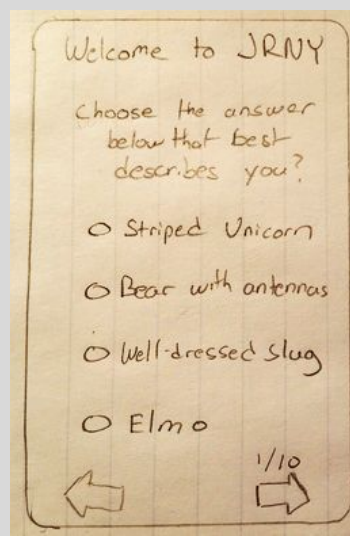 Welcome to JRNY
Choose the answer
below that best
describes you?
Striped Unicorn
Bear with antennas
Well-dressed slug
Elmo
1/10